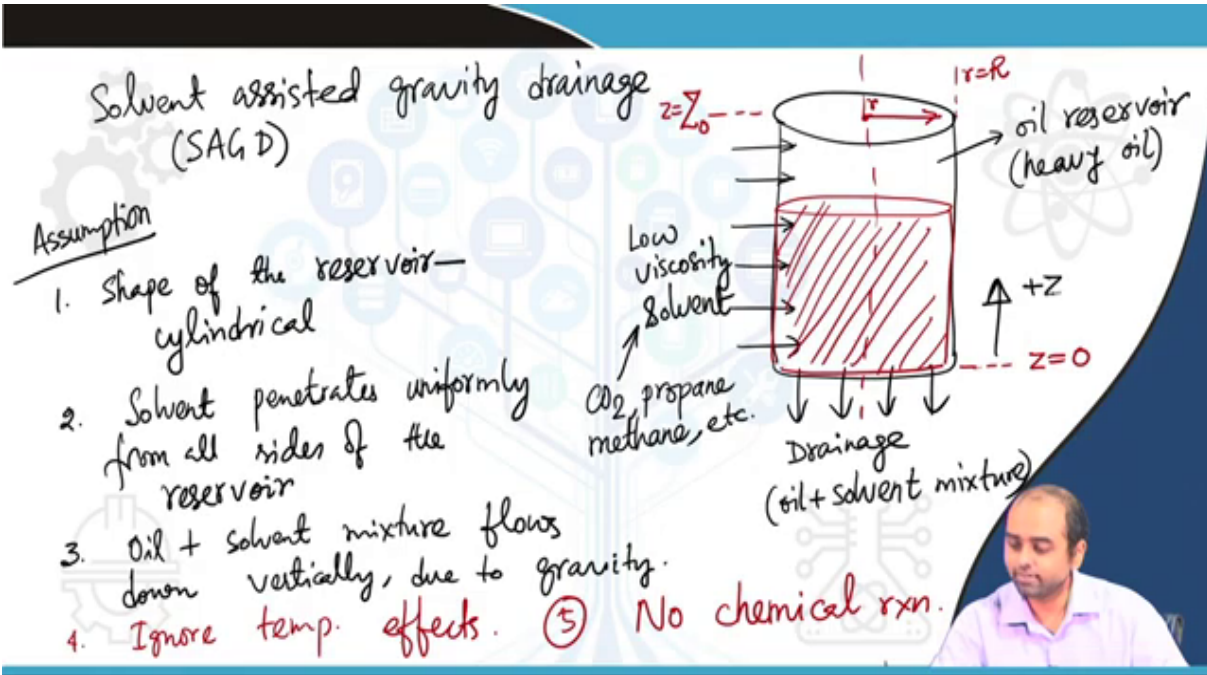 Solvent assisted gravity drainage
(SAGD)
Assumption
1. Shape of the reservoir—
cylindrical
2. Solvent penetrates uniformly
from all sides of the
reservoir
3. Oil + solvent mixture flows
down vertically, due to gravity.
4. Ignore temp. effects. ⑤ No chemical rxn.
z=Z0
r
r=R
oil reservoir
(heavy oil)
Low
viscosity
Solvent
CO2, propane
methane, etc.
+Z
z=0
Drainage
(oil+solvent mixture)